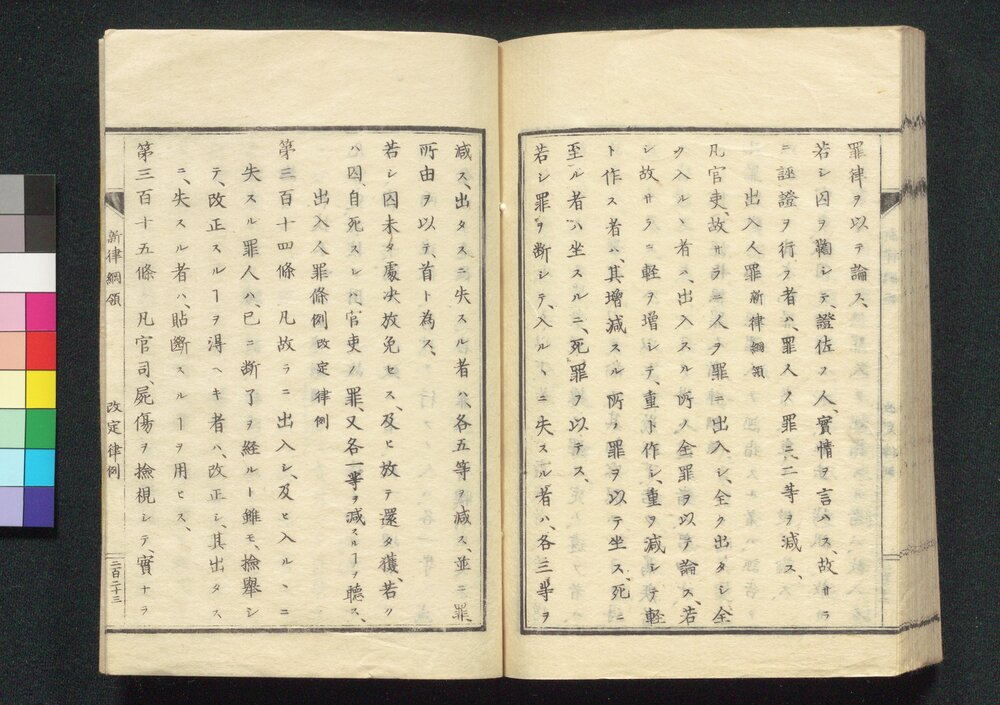 罪律ヲ以テ論ス、
若シ囚ヲ鞫シテ、證佐ノ人、實情ヲ言ハス、故サラ
ニ誣證ヲ行フ者ハ、罪人ノ罪ニ、二等ヲ減ス、
出入人罪 新律綱領
凡官吏、故サラニ人ヲ罪ニ出入シ、全ク出タシ全
ク入ルヽ者ハ、出入スル所ノ全罪ヲ以テ論ス、若
シ故サラニ軽ヲ增シテ、重ト作シ、重ヲ減シテ軽
ト作ス者ハ、其增減スル所ノ罪ヲ以テ坐ス、死ニ
至ル者ハ坐スルニ、死罪ヲ以テス、
若シ罪ヲ断シテ、入ルヽニ失スル者ハ、各三等ヲ
減ス、出タスニ失スル者ハ各五等ヲ減ス、並ニ罪
所由ヲ以テ、首ト為ス、
若シ囚未タ處决放免セス、及ヒ放テ還タ獲、若ク
ハ囚、自死スレハ、官吏ノ罪、又各一等ヲ減スルヿヲ聴ス、
出入人罪條例 改定律例
第三百十四條 凡故ラニ出入シ、及ヒ入ルヽニ
失スル罪人ハ、已ニ断了ヲ経ルト雖モ、撿舉シ
テ、改正スルヿヲ得ヘキ者ハ、改正シ、其出タス
ニ、失スル者ハ、貼斷スルヿヲ用ヒス、
第三百十五條 凡官司、屍傷ヲ撿視シテ、實ナラ
新律綱領
改定律例
二百二十三